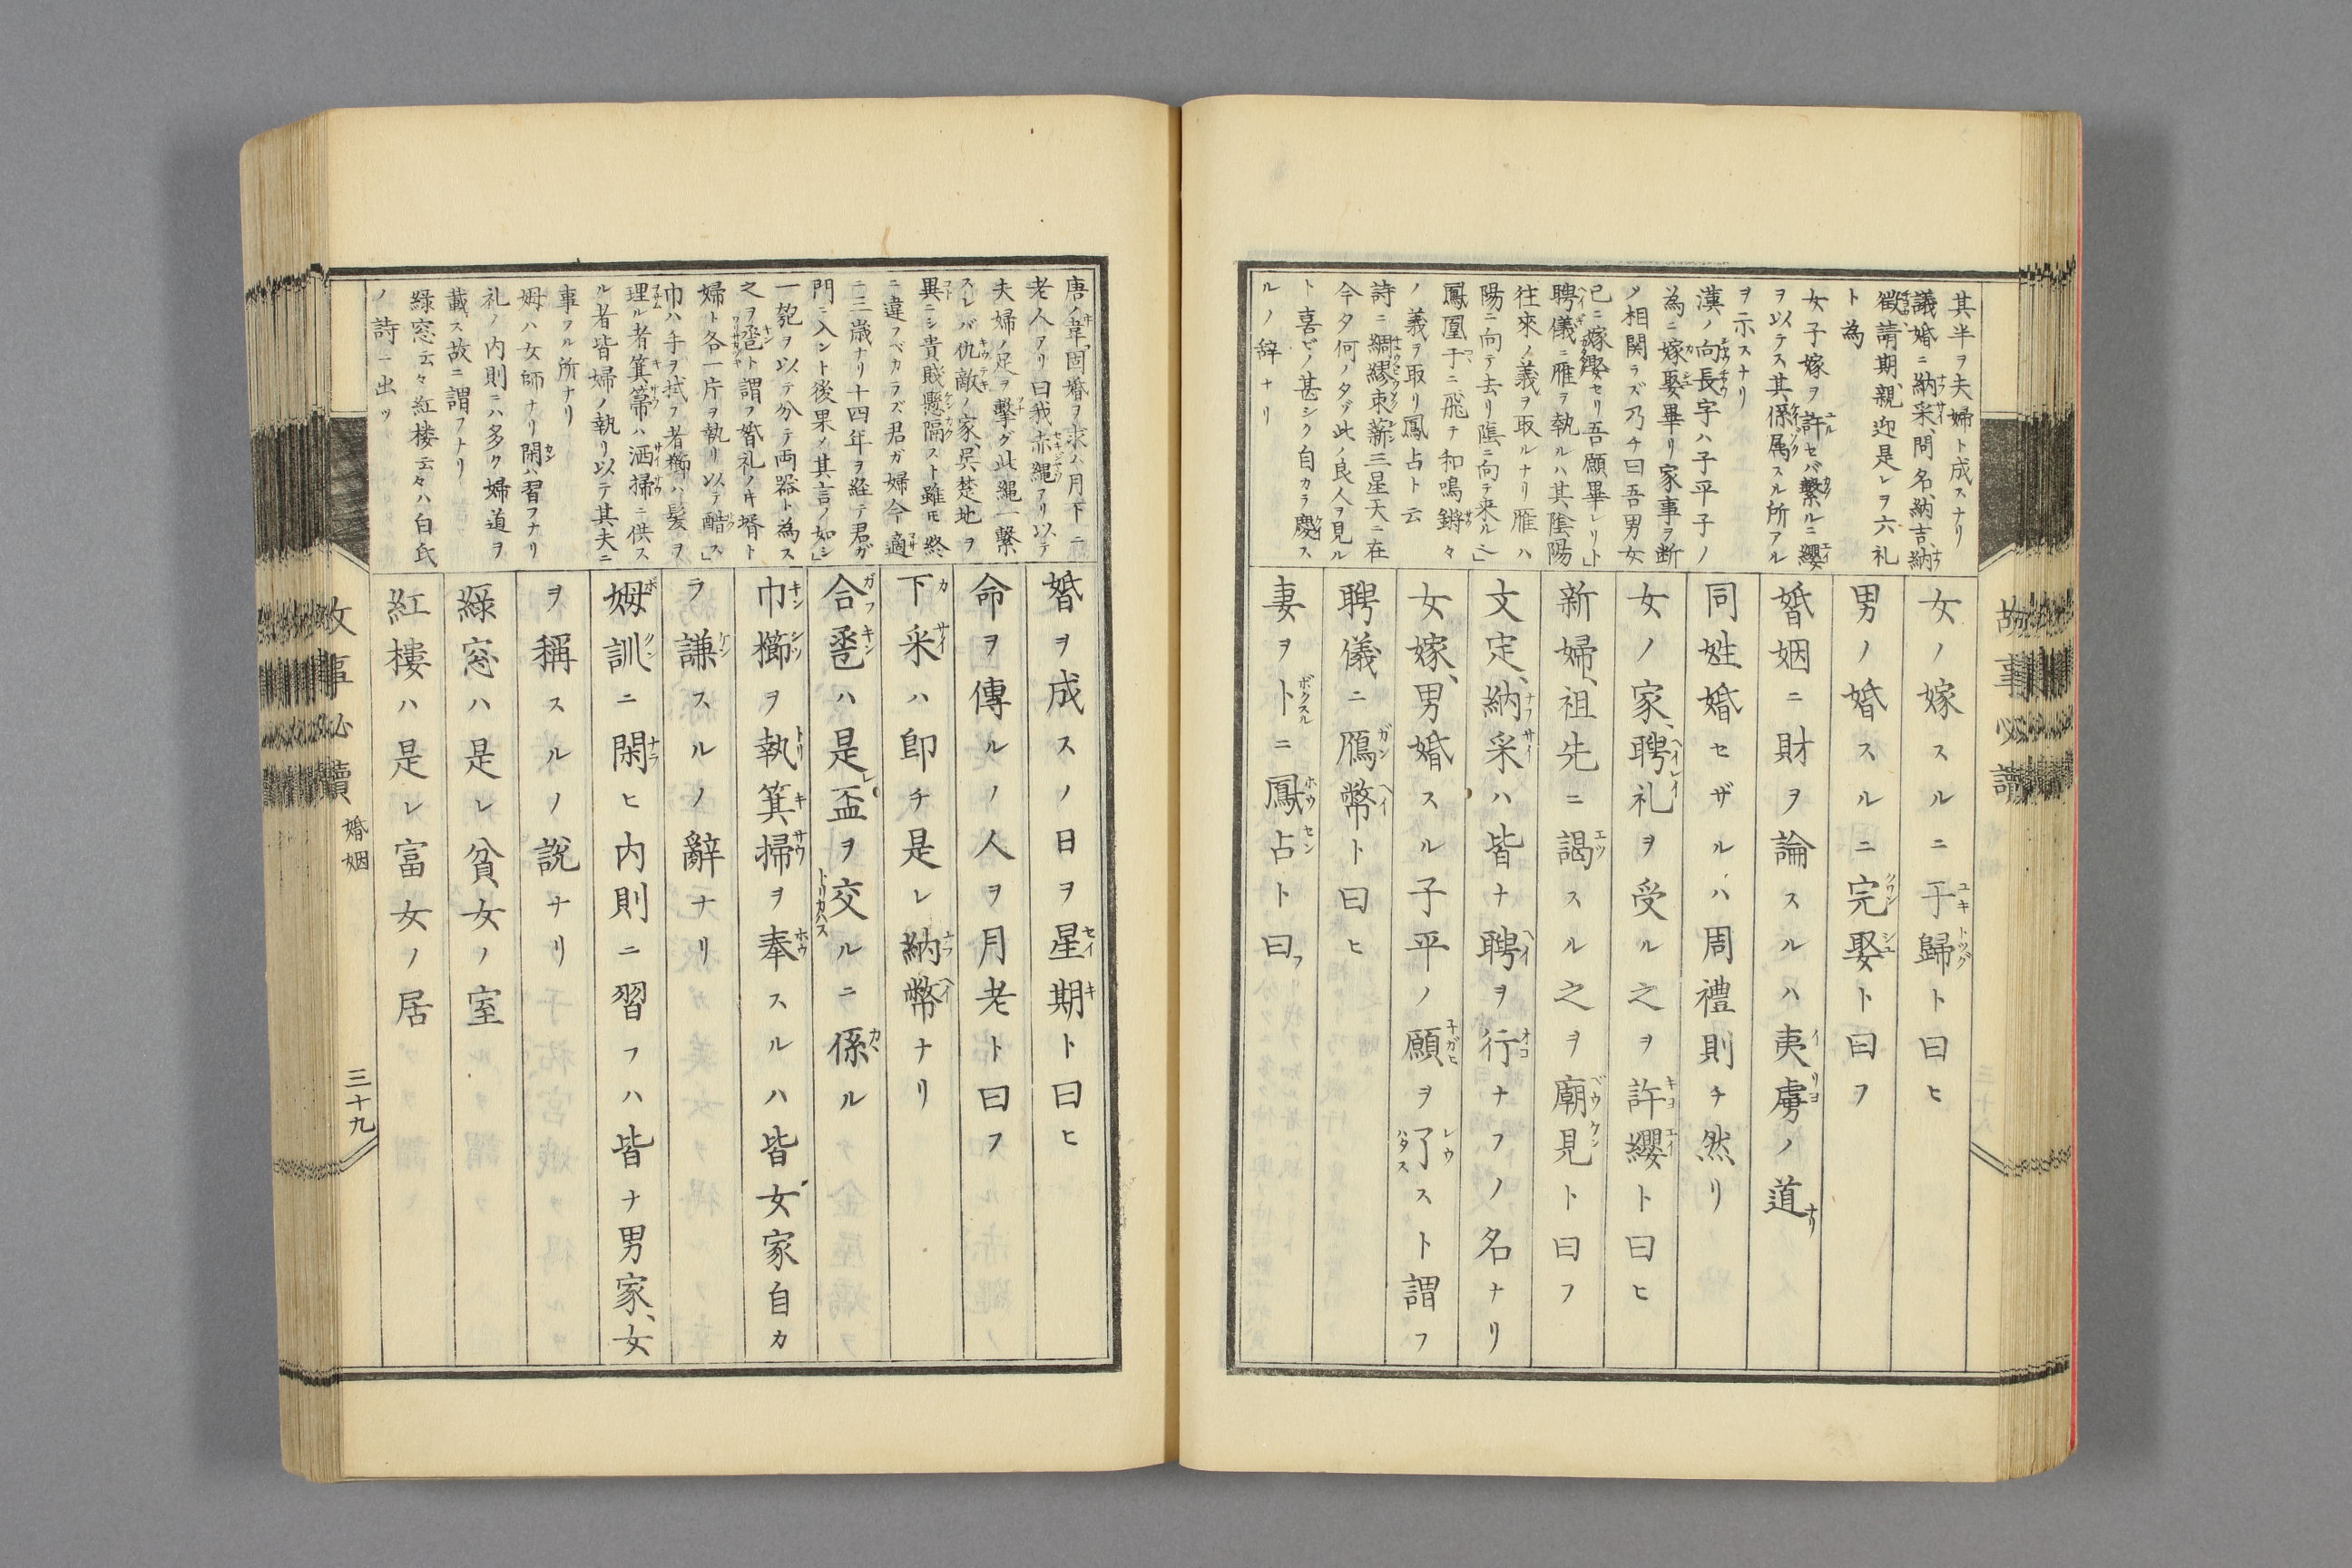 其半ヲ夫婦ト成スナリ
議婚ニ納采、問名、納吉、納
徴、請期、親迎是レヲ六礼
ト為
女子嫁ヲ許セバ繋ルニ纓
ヲ以テス其係属スル所アル
ヲ示スナリ
漢ノ向長字ハ子平子ノ
為ニ嫁娶畢リ家事ヲ断
ノ相関ラズ乃チ曰吾男女
已ニ嫁娶セリ吾願畢レリト」
聘儀ニ雁ヲ執ルハ其陰陽
往來ノ義ヲ取ルナリ雁ハ
陽ニ向テ去リ陰ニ向テ来ル」
鳳凰于ニ飛テ和鳴鏘々
ノ義ヲ取リ鳳占ト云
詩ニ綢繆束薪三星天ニ在
今夕何ノタゾ此ノ良人ヲ見ル
ト喜ビノ甚シク自カラ慶ス
ルノ辞ナリ
女ノ嫁スルニ于歸ト曰ヒ
男ノ婚スルニ完娶ト曰フ
婚姻ニ財ヲ論スルハ夷虜ノ道ナリ
同姓婚セザルハ周禮則チ然リ
女ノ家、聘礼ヲ受ル之ヲ許纓ト曰ヒ
新婦、祖先ニ謁スル之ヲ廟見ト曰フ
文定、納采ハ皆ナ聘ヲ行ナフノ名ナリ
女嫁、男婚スル子平ノ願ヲ了スト謂フ
聘儀ニ鴈幣ト曰ヒ
妻ヲトニ鳳占ト曰フ
故事必讀
唐ノ韋固婚ヲ求ハ月下ニ
老人アリ曰我赤縄アリ以テ
夫婦ノ足ヲ撃グ此縄一繋
スレバ仇敵ノ家、呉楚地ヲ
異ニシ貴賎懸隔スト雖モ終
ニ違フベカラズ君ガ婦今適
ニ三歳ナリ十四年ヲ経テ君ガ
門ニ入ント後果ノ其言ノ如シ」
一匏ヲ以テ分テ両器ト為ス
之ヲ卺ト謂フ婚礼ノキ壻ト
婦ト各一片ヲ執リ以テ酳ス」
巾ハ手ヲ拭フ者櫛ハ髪ヲ
理ル者箕、箒ハ洒掃ニ供ス
ル者皆婦ノ執リ以テ其夫ニ
事フル所ナリ
姆ハ女師ナリ閑ハ習フナリ
礼ノ内則ニハ多ク婦道ヲ
載ス故ニ謂フナリ
緑窓云々紅楼云々ハ白氏
ノ詩ニ出ヅ
婚ヲ成スノ日ヲ星期ト曰ヒ
命ヲ傳ルノ人ヲ月老ト曰フ
下采ハ即チ是レ納幣ナリ
合卺ハ是レ盃ヲ交ルニ係ル
巾櫛ヲ執箕掃ヲ奉スルハ皆女家自カ
ラ謙スルノ辭ナリ
姆訓ニ閑ヒ内則ニ習フハ皆ナ男家、女
ヲ稱スルノ説ナリ
緑窓ハ是レ貧女ノ室
紅樓ハ是レ富女ノ居
故事必讀 婚姻 三十九